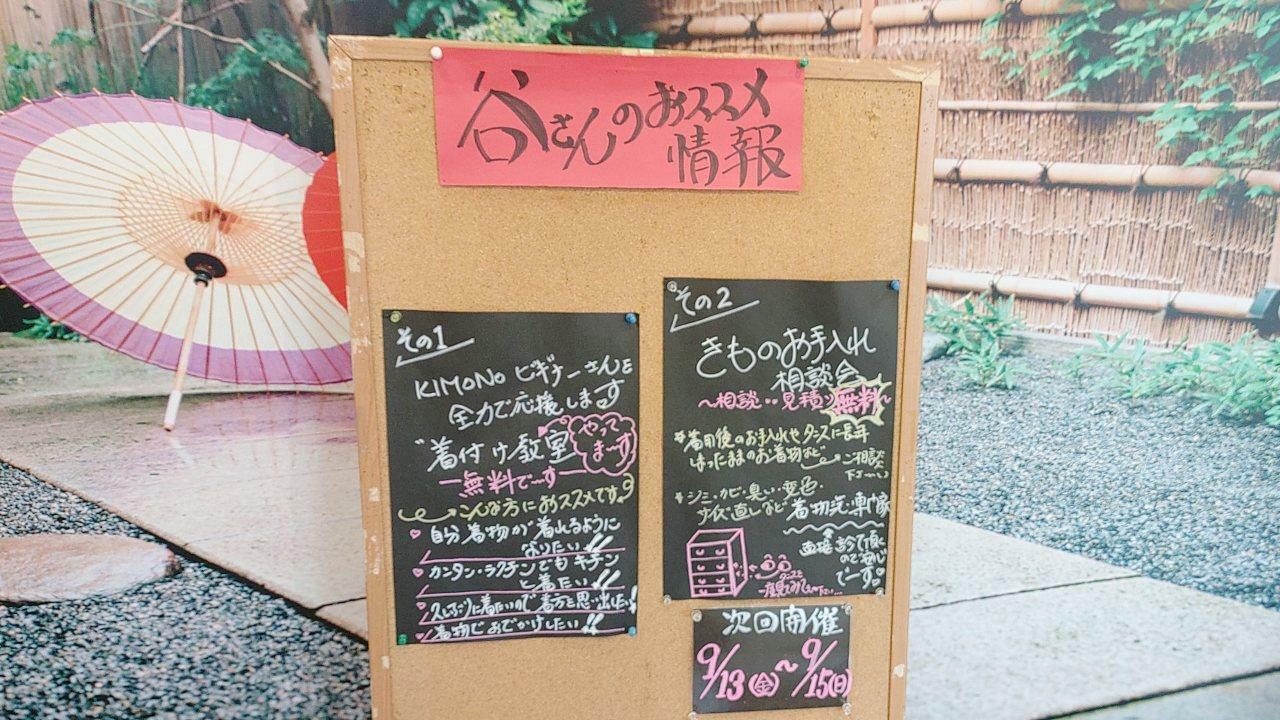 谷さんのおススメ
情報
その1
KIMONO ビギナーさんを
全力で応援します
着付け教室
やって
ま〜す
無料で〜す
こんな方におススメです
自分で着物が着れるように
なりたい!!
カンタン・ラクチンでもキチン
と着たい!!
久しぶりに着たいので着方を思い出したい!
着物でおでかけしたい!!
その2
きものお手入れ
相談会
〜相談・見積り無料〜
着用後のお手入れやタンスに長年
しまったままのお着物など
ご相談
下さーい
シミ・カビ・臭い・変色・
サイズ直しなど 着物専門家
直接診て頂く
ので安心
で〜す
タンスを
次回開催
9/13(金)〜9/15(日)